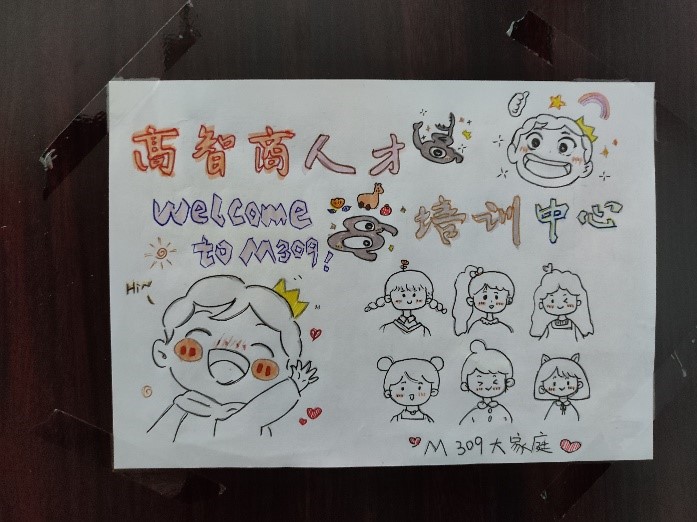 高智商人才
培训中心
Welcome
to M309!
Hi~
M 309大家庭